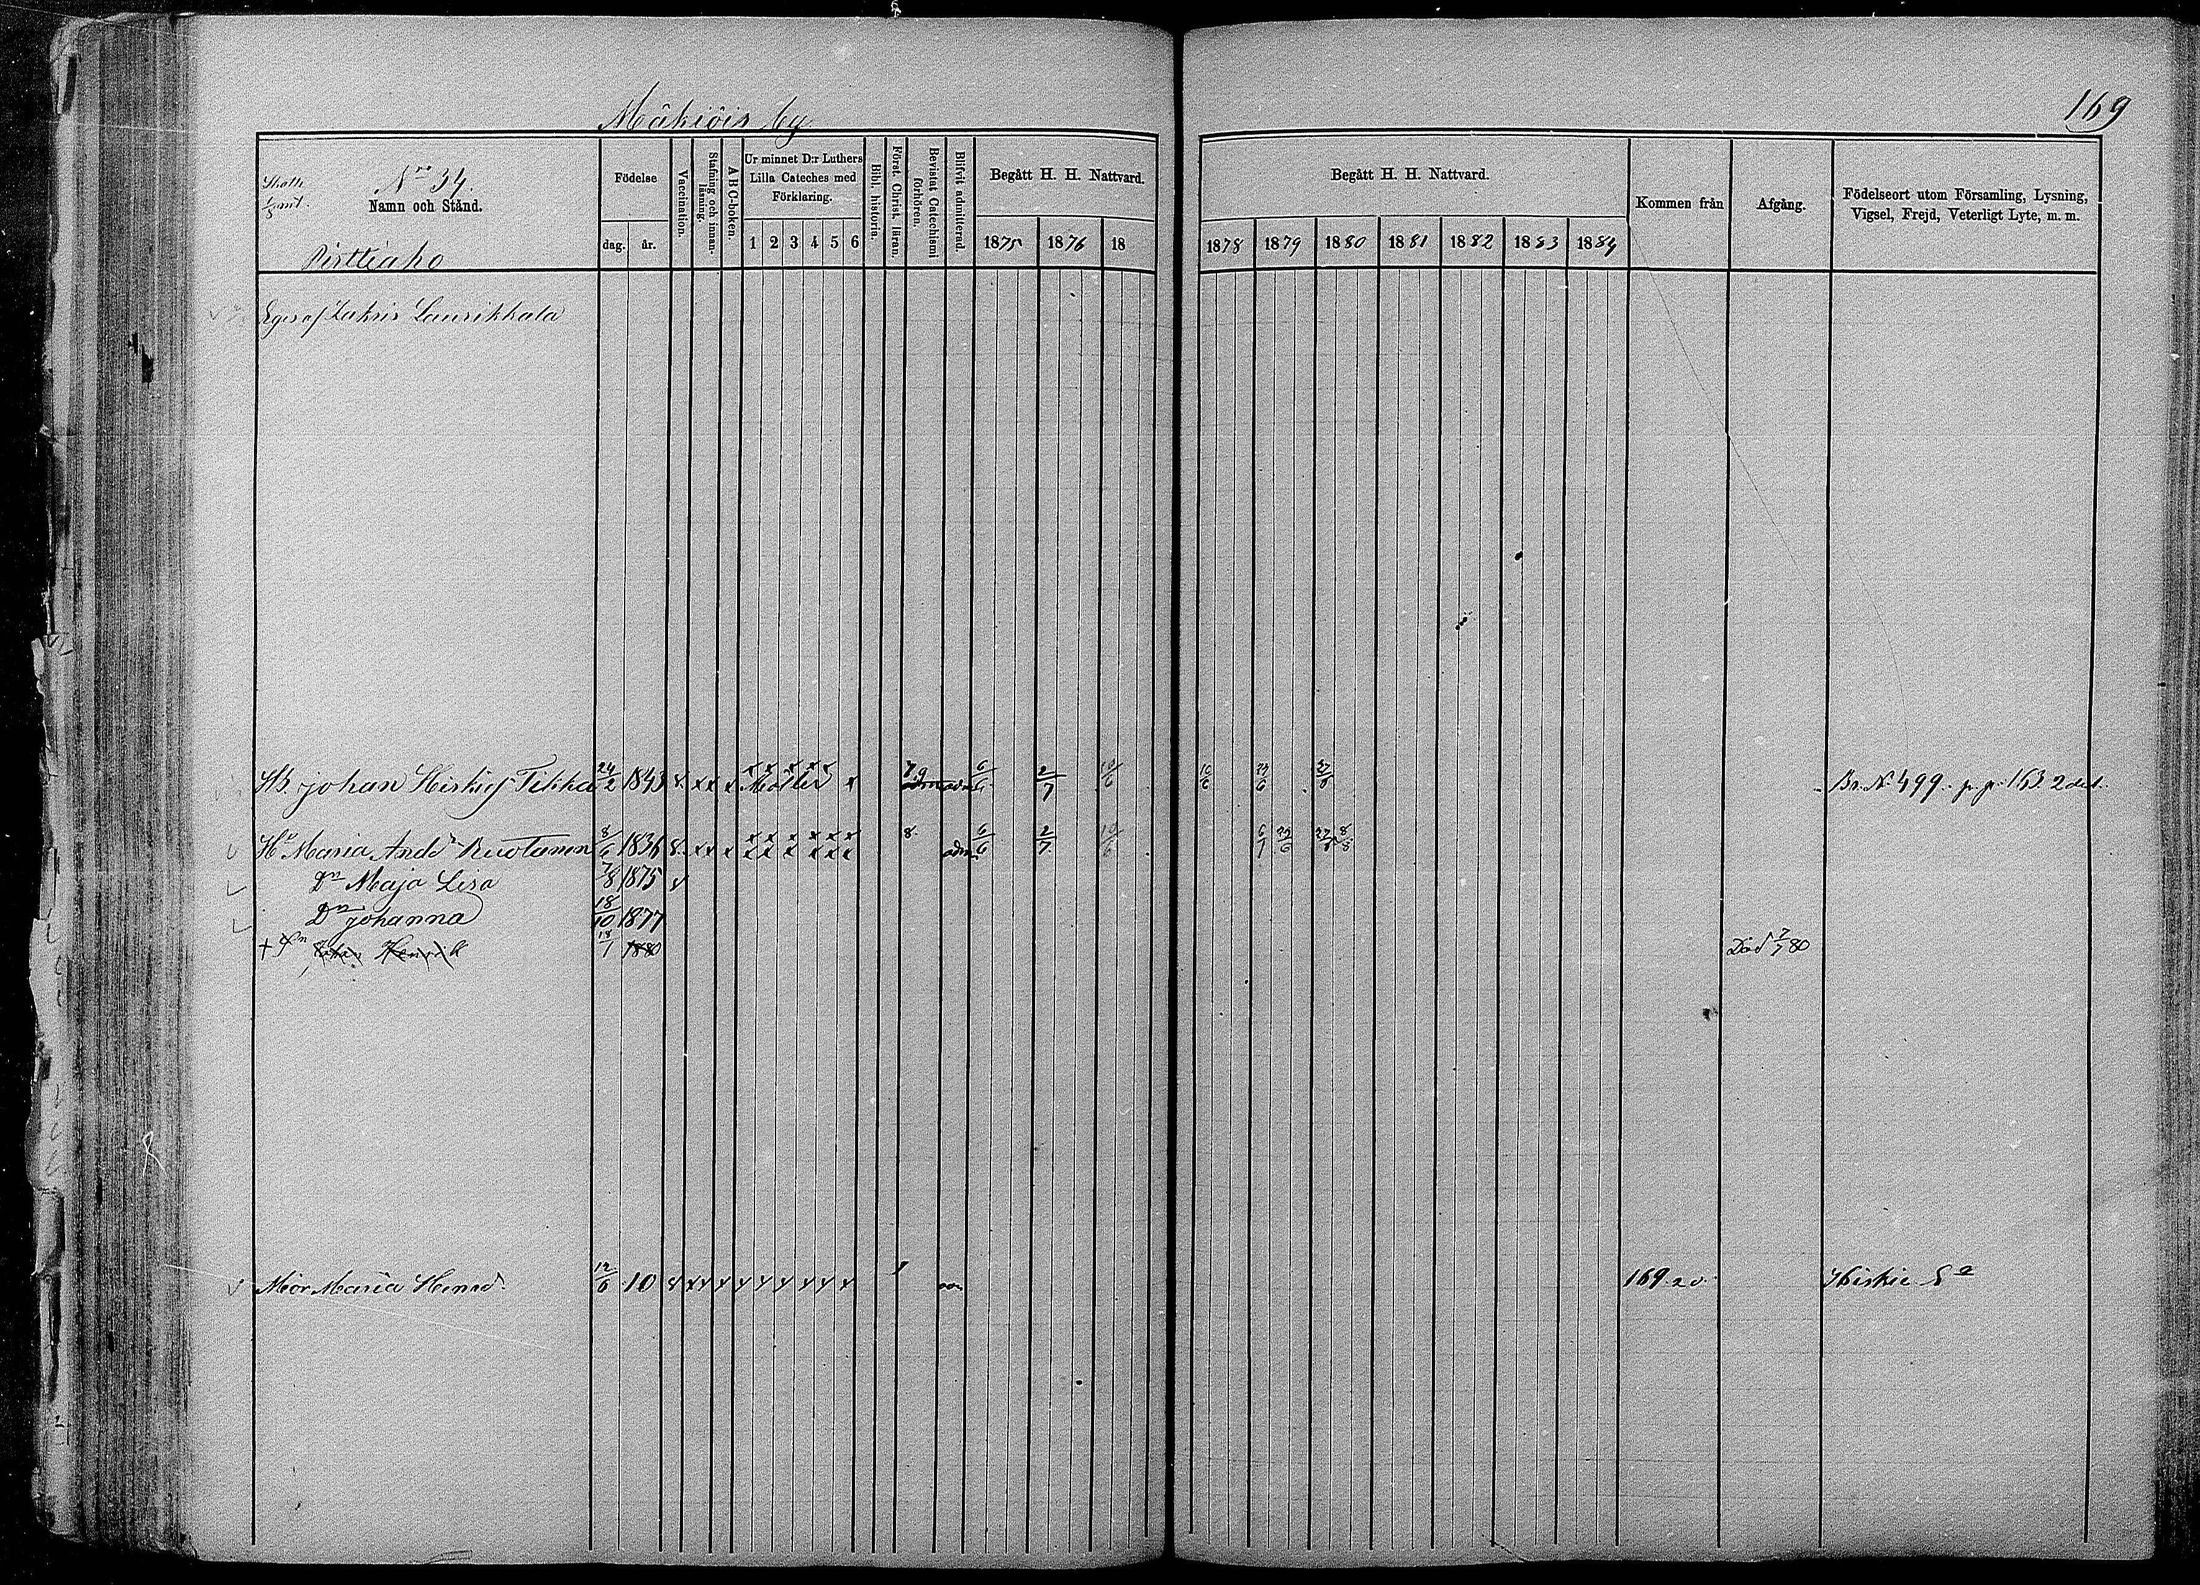 Mäkiöis by
169
Skatt
1/8 mtl.
Nro 34.
Namn och Stånd.
Pirttiaho
Födelse
dag. år.
Vaccination.
Stafning och innanläsning.
A B C-boken.
Ur minnet D:r Luthers Lilla Cateches med Förklaring.
1 2 3 4 5 6
Bibl. historia.
Först. Christ. läran.
Bevistat Catechismi förhören.
Blifvit admitterad.
Begått H. H. Nattvard.
1875 1876 18
Begått H. H. Nattvard.
1878 1879 1880 1881 1882 1883 1884
Kommen från
Afgång.
Födelseort utom Församling, Lysning, Vigsel, Frejd, Veterligt Lyte, m. m.
Eges af Zakris Laurikkala
Hb. Johan Hiskief Tikka 24/2 1843 x xx x x 7 9 adm 6/6 2/7 10/6 10/6 27/8 Br. N 499 p. p. 163 2 del.
Hu Maria Andd Ruotanen 8/6 1836 8 adm 6/6 2/7 10/6 8/8
Dn Maja Lisa 7/8 1875
Dn Johanna 18/10 1877
+ Sn Johan Henrik 18/1 1880 Död 7/7 80
Mor Maria Henrd 12/6 10 169 20 Hiskie Ea